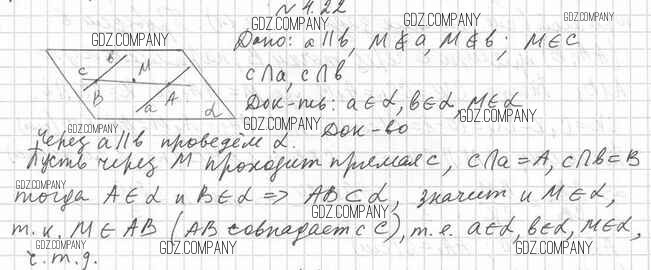 № 4.22
GDZ.COMPANY GDZ.COMPANY GDZ.COMPANY
GDZ.COMPANY
Дано: a∥b, M∉a, M∉b; M∈c
c∩a, c∩b
Док-ть: a∈α, b∈α, M∈α
GDZ.COMPANY GDZ.COMPANY
c b M
B a A α
GDZ.COMPANY GDZ.COMPANY
Док-во
Через a∥b проведём α.
Пусть через M проходит прямая c, c∩a=A, c∩b=B
GDZ.COMPANY
тогда A∈α и B∈α => AB⊂α, значит и M∈α,
GDZ.COMPANY
т.к. M∈AB (AB совпадает с c), т.е. a∈α, b∈α, M∈α,
GDZ.COMPANY GDZ.COMPANY GDZ.COMPANY
ч.т.д.